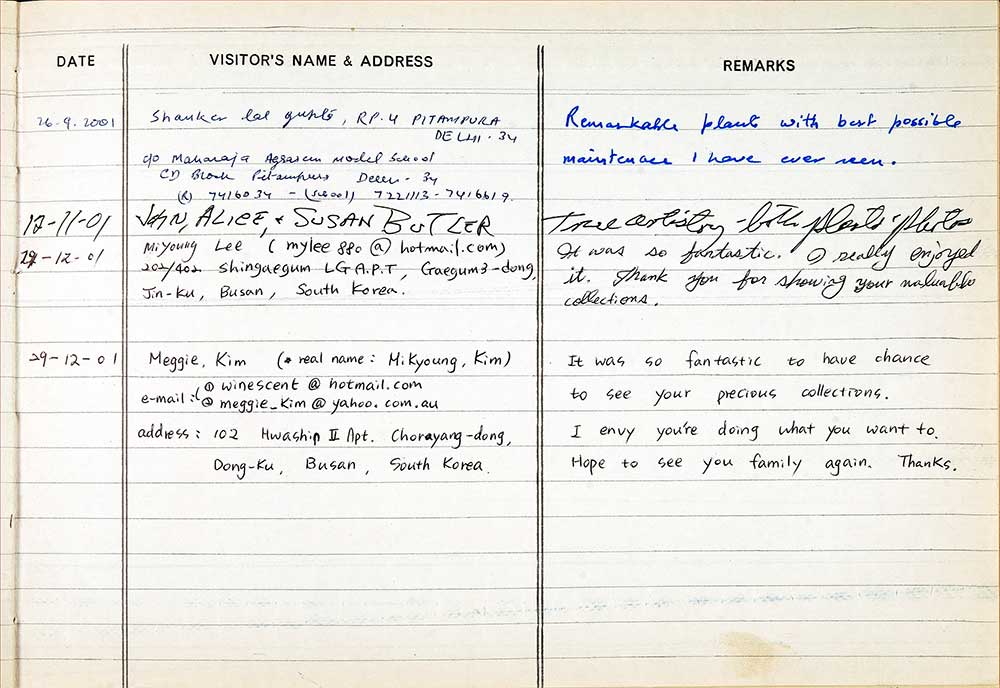 DATE
VISITOR'S NAME & ADDRESS
REMARKS
26-9-2001
Shanker lal gupta, RP-4 PITAMPURA
DELHI-34
c/o Maharaja Agrasen model School
CD Block Pitampura Delhi-34
(R) 7416034 - (School) 7221113-7416619.
Remarkable plants with best possible
maintenace I have ever seen.
12-11-01
ALICE, & SUSAN BUTLER
True artistry - both plants & photos
29-12-01
MiYoung Lee ( mylee880@hotmail.com)
202/402 Shingaegum LG A.P.T, Gaegum3-dong,
Jin-Ku, Busan, South Korea.
It was so fantastic. I really enjoyed
it. Thank you for showing your valuable
collections.
29-12-01
Meggie, Kim (* real name: Mikyoung, Kim)
e-mail: ① winescent@hotmail.com
② meggie_kim@yahoo.com.au
address: 102 Hwaship II Apt. Chorayang-dong,
Dong-Ku, Busan, South Korea.
It was so fantastic to have chance
to see your precious collections.
I envy you're doing what you want to.
Hope to see you family again. Thanks.